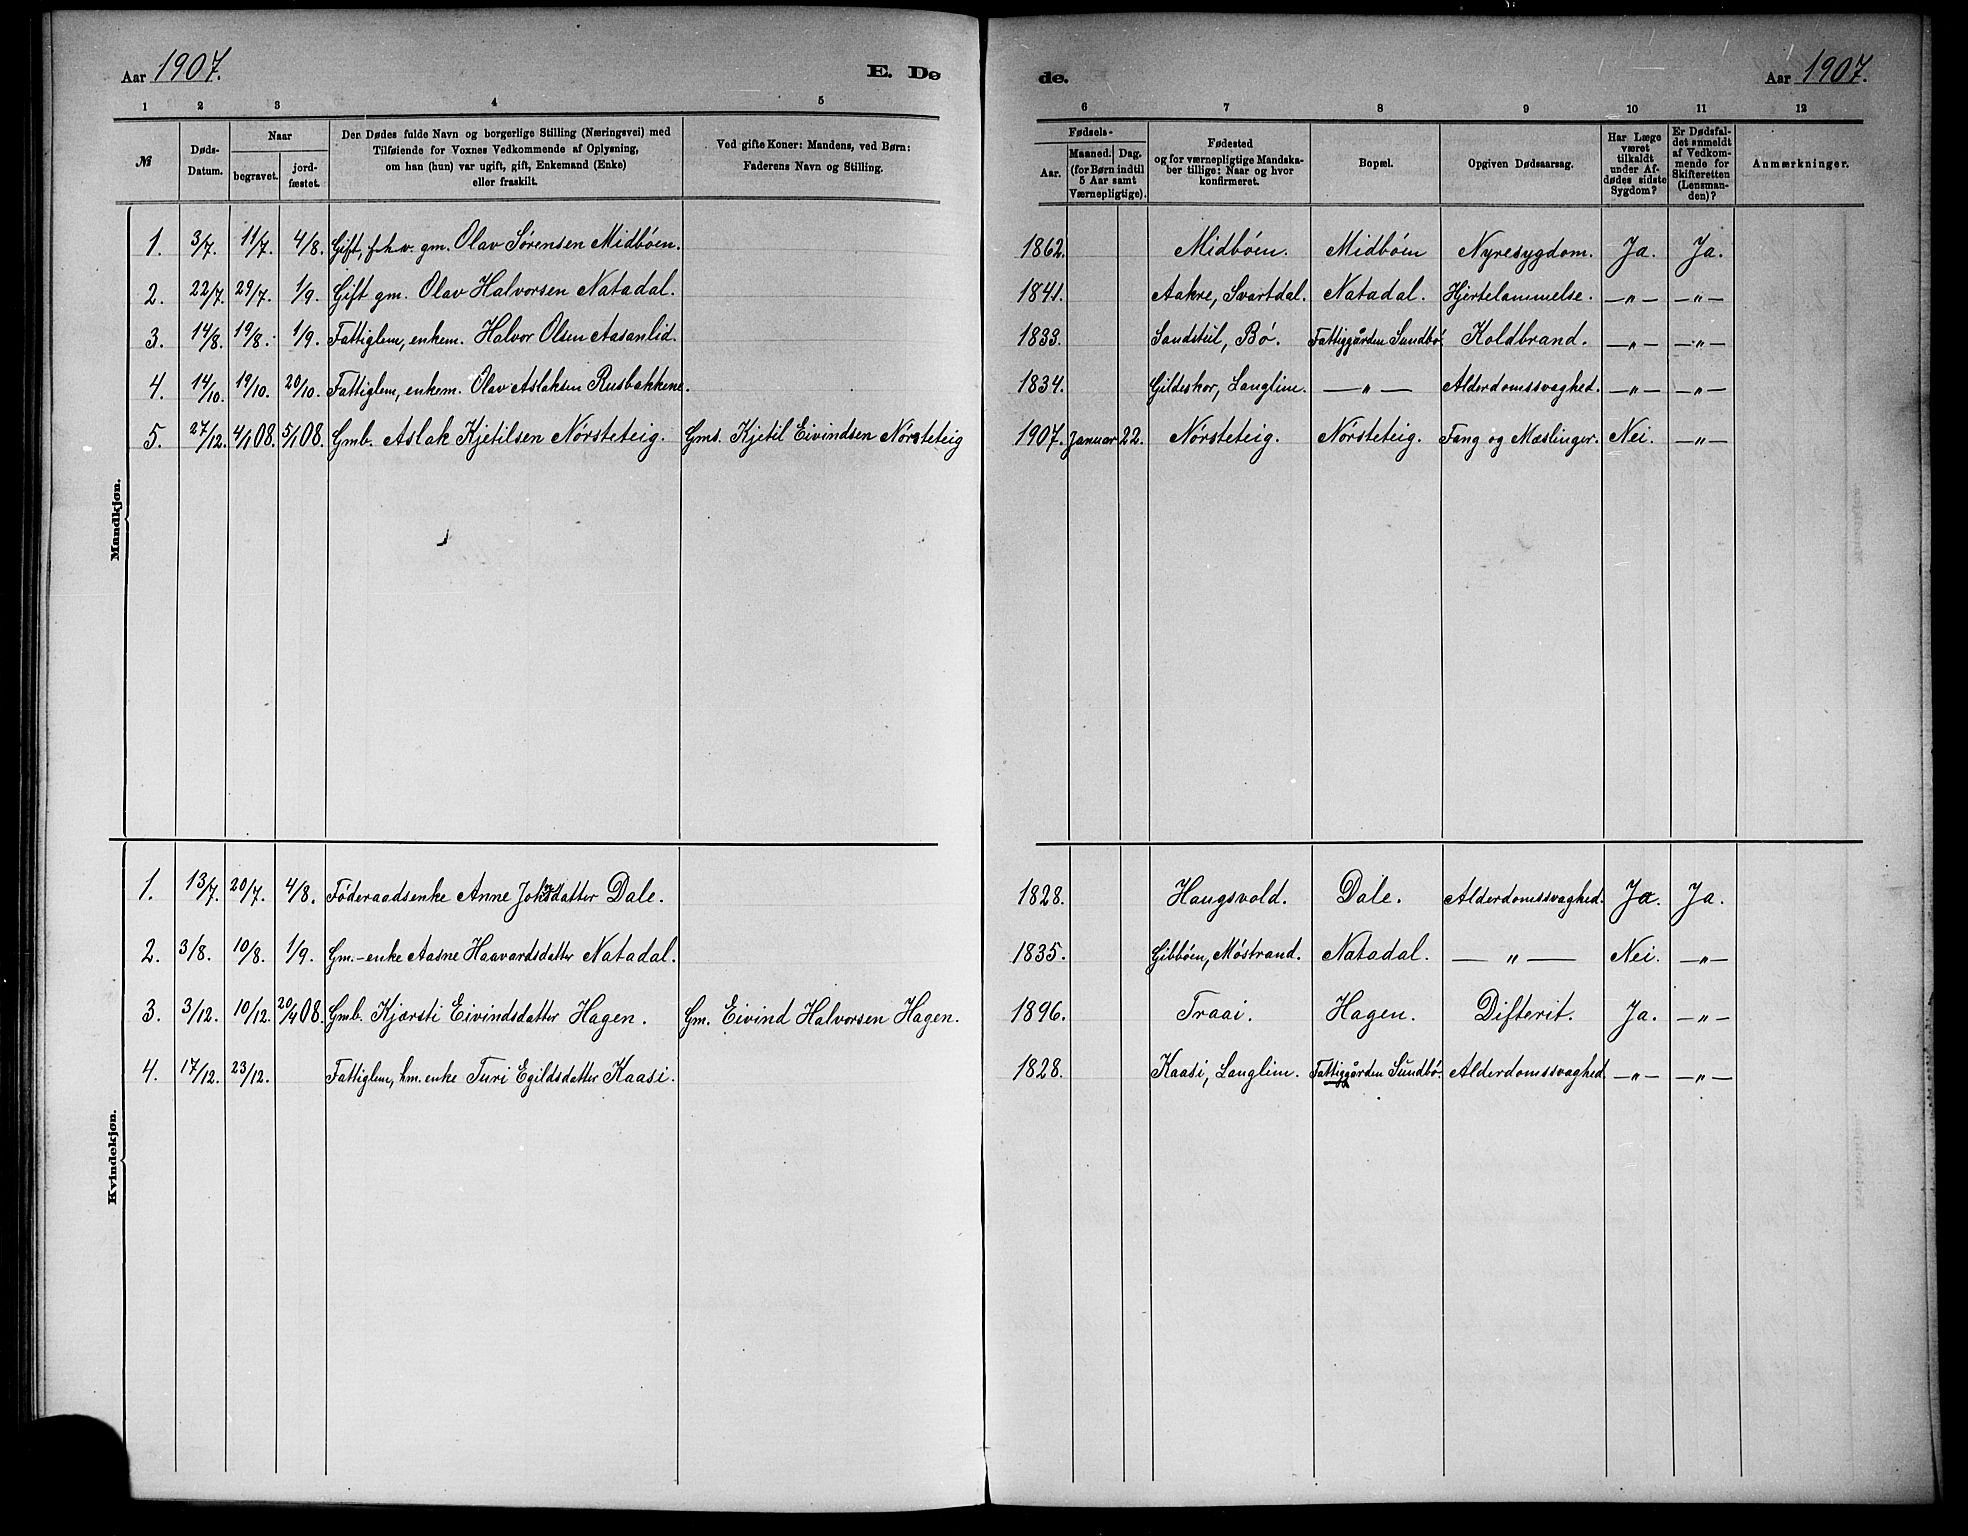 Aar 1907. E. De de. Aar 1907.
1 2 3 4 5 6 7 8 9 10 11 12
№ Døds-Datum. Naar begravet. jordfæstet. Den Dødes fulde Navn og borgerlige Stilling (Næringsvei) med Tilføiende for Voxnes Vedkommende af Oplysning, om han (hun) var ugift, gift, Enkemand (Enke) eller fraskilt. Ved gifte Koner: Mandens, ved Børn: Faderens Navn og Stilling. Fødsels- Aar. Maaned. Dag. (for Børn indtil 5 Aar samt Værnepligtige). Fødested og for værnepligtige Mandskaber tillige: Naar og hvor konfirmeret. Bopæl. Opgiven Dødsaarsag. Har Læge været tilkaldt under Afdødes sidste Sygdom? Er Dødsfaldet anmeldt af Vedkommende for Skifteretten (Lensmanden)? Anmærkninger.
Mandkjøn.
1. 3/7. 11/7. 4/8. Gift, f.h.v. gm. Olav Sørensen Midbøen. 1862. Midbøen. Midbøen Nyresygdom. Ja. Ja.
2. 22/7. 29/7. 1/9. Gift gm. Olav Halvorsen Natadal. 1841. Aakre, Svartdal. Natadal. Hjertelammelse. —„— —„—
3. 14/8. 19/8. 1/9. Fattiglem, enkem. Halvor Olsen Aasanlid. 1833. Sandstul, Bø. Fattiggården Sundbø. Koldbrand. —„— —„—
4. 14/10. 19/10. 20/10. Fattiglem, enkem. Olav Aslaksen Rusbakkene. 1834. Gildeskor, Langlim. —„— Alderdomssvaghed. —„— —„—
5. 27/12. 4/1 08. 5/1 08. Gmb. Aslak Kjetilsen Nørsteteig. Gms. Kjetil Eivindsen Nørsteteig 1907. Januar 22. Nørsteteig. Nørsteteig. Tæng og Mæslinger. Nei. —„—
Kvindekjøn.
1. 13/7. 20/7. 4/8. Føderaadsenke Anne Johsdatter Dale. 1828. Haugsvold. Dale. Alderdomssvaghed. Ja. Ja.
2. 3/8. 10/8. 1/9. Gm.-enke Aasne Haavardsdatter Natadal. 1835. Gibbøen, Møstrand. Natadal. —„— Nei. —„—
3. 3/12. 10/12. 20/4 08. Gmb. Kjærsti Eivindsdatter Hagen. Gm. Eivind Halvorsen Hagen. 1896. Traai. Hagen. Difterit. Ja. —„—
4. 17/12. 23/12. Fattiglem, hm. enke Turi Egildsdatter Kaasi. 1828. Kaasi, Langlim. Fattiggården Sundbø. Alderdomssvaghed —„— —„—